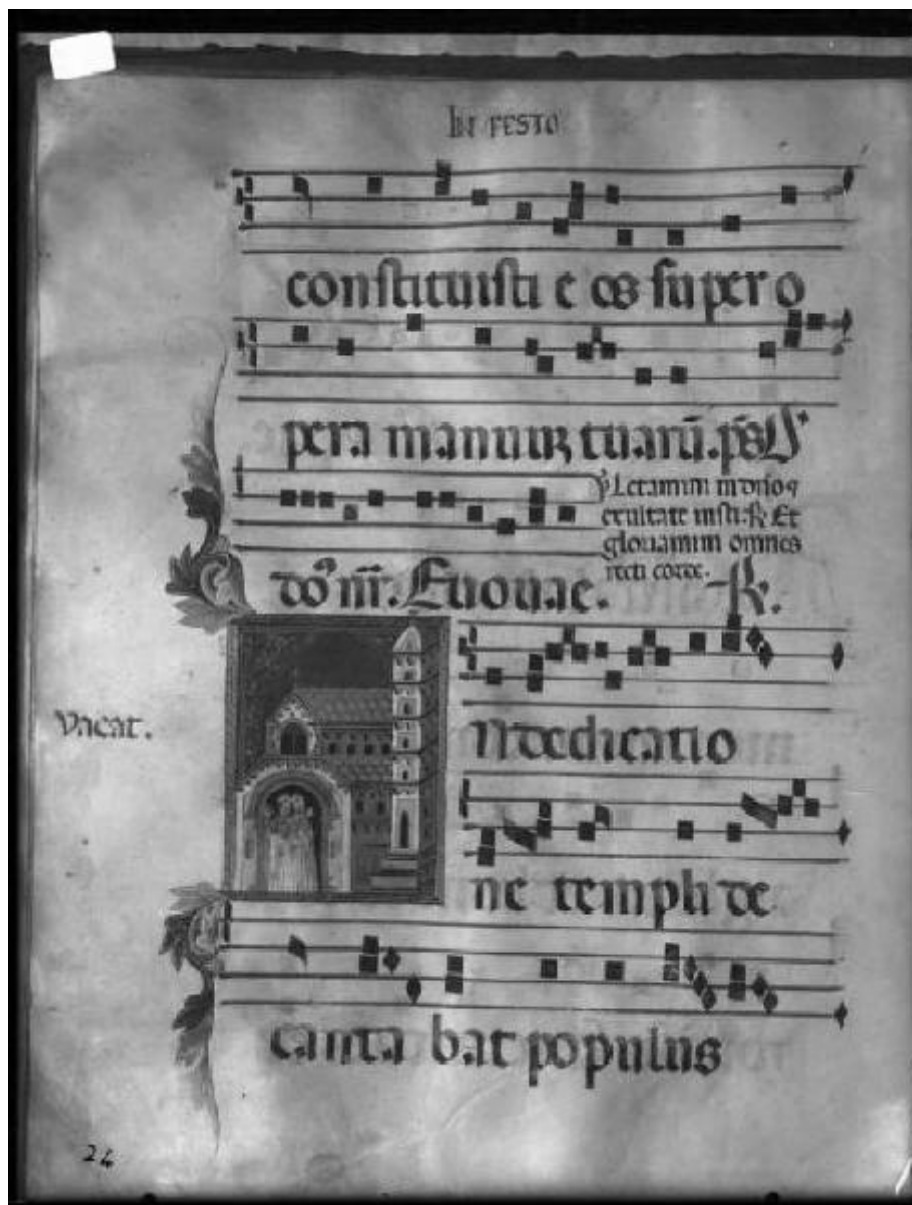 IN FESTO
constituisti e os super o
pera manuuꝝ tuarū. ps
℣ Letamini in dn̄o ⁊
exultate iusti. ℟ Et
gloriamini omnes
recti corde.
dō nr̄. Euouae. ℟.
Vacat.
N dedicatio
ne templi de
canta bat populus
24